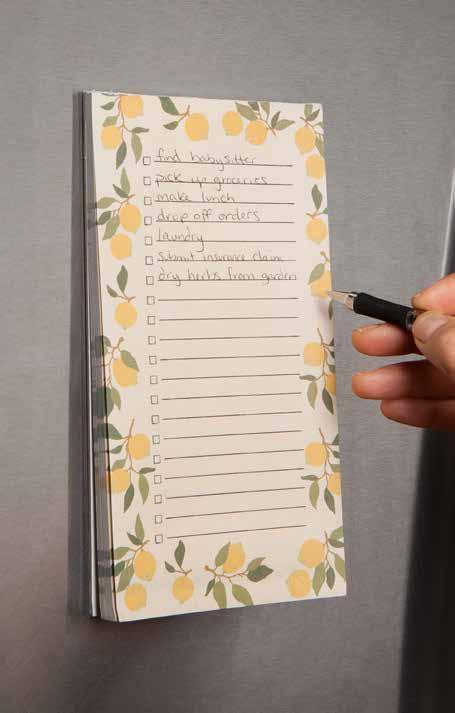 find babysitter
pick up groceries
make lunch
drop off orders
laundry
submit insurance claim
dry herbs from garden